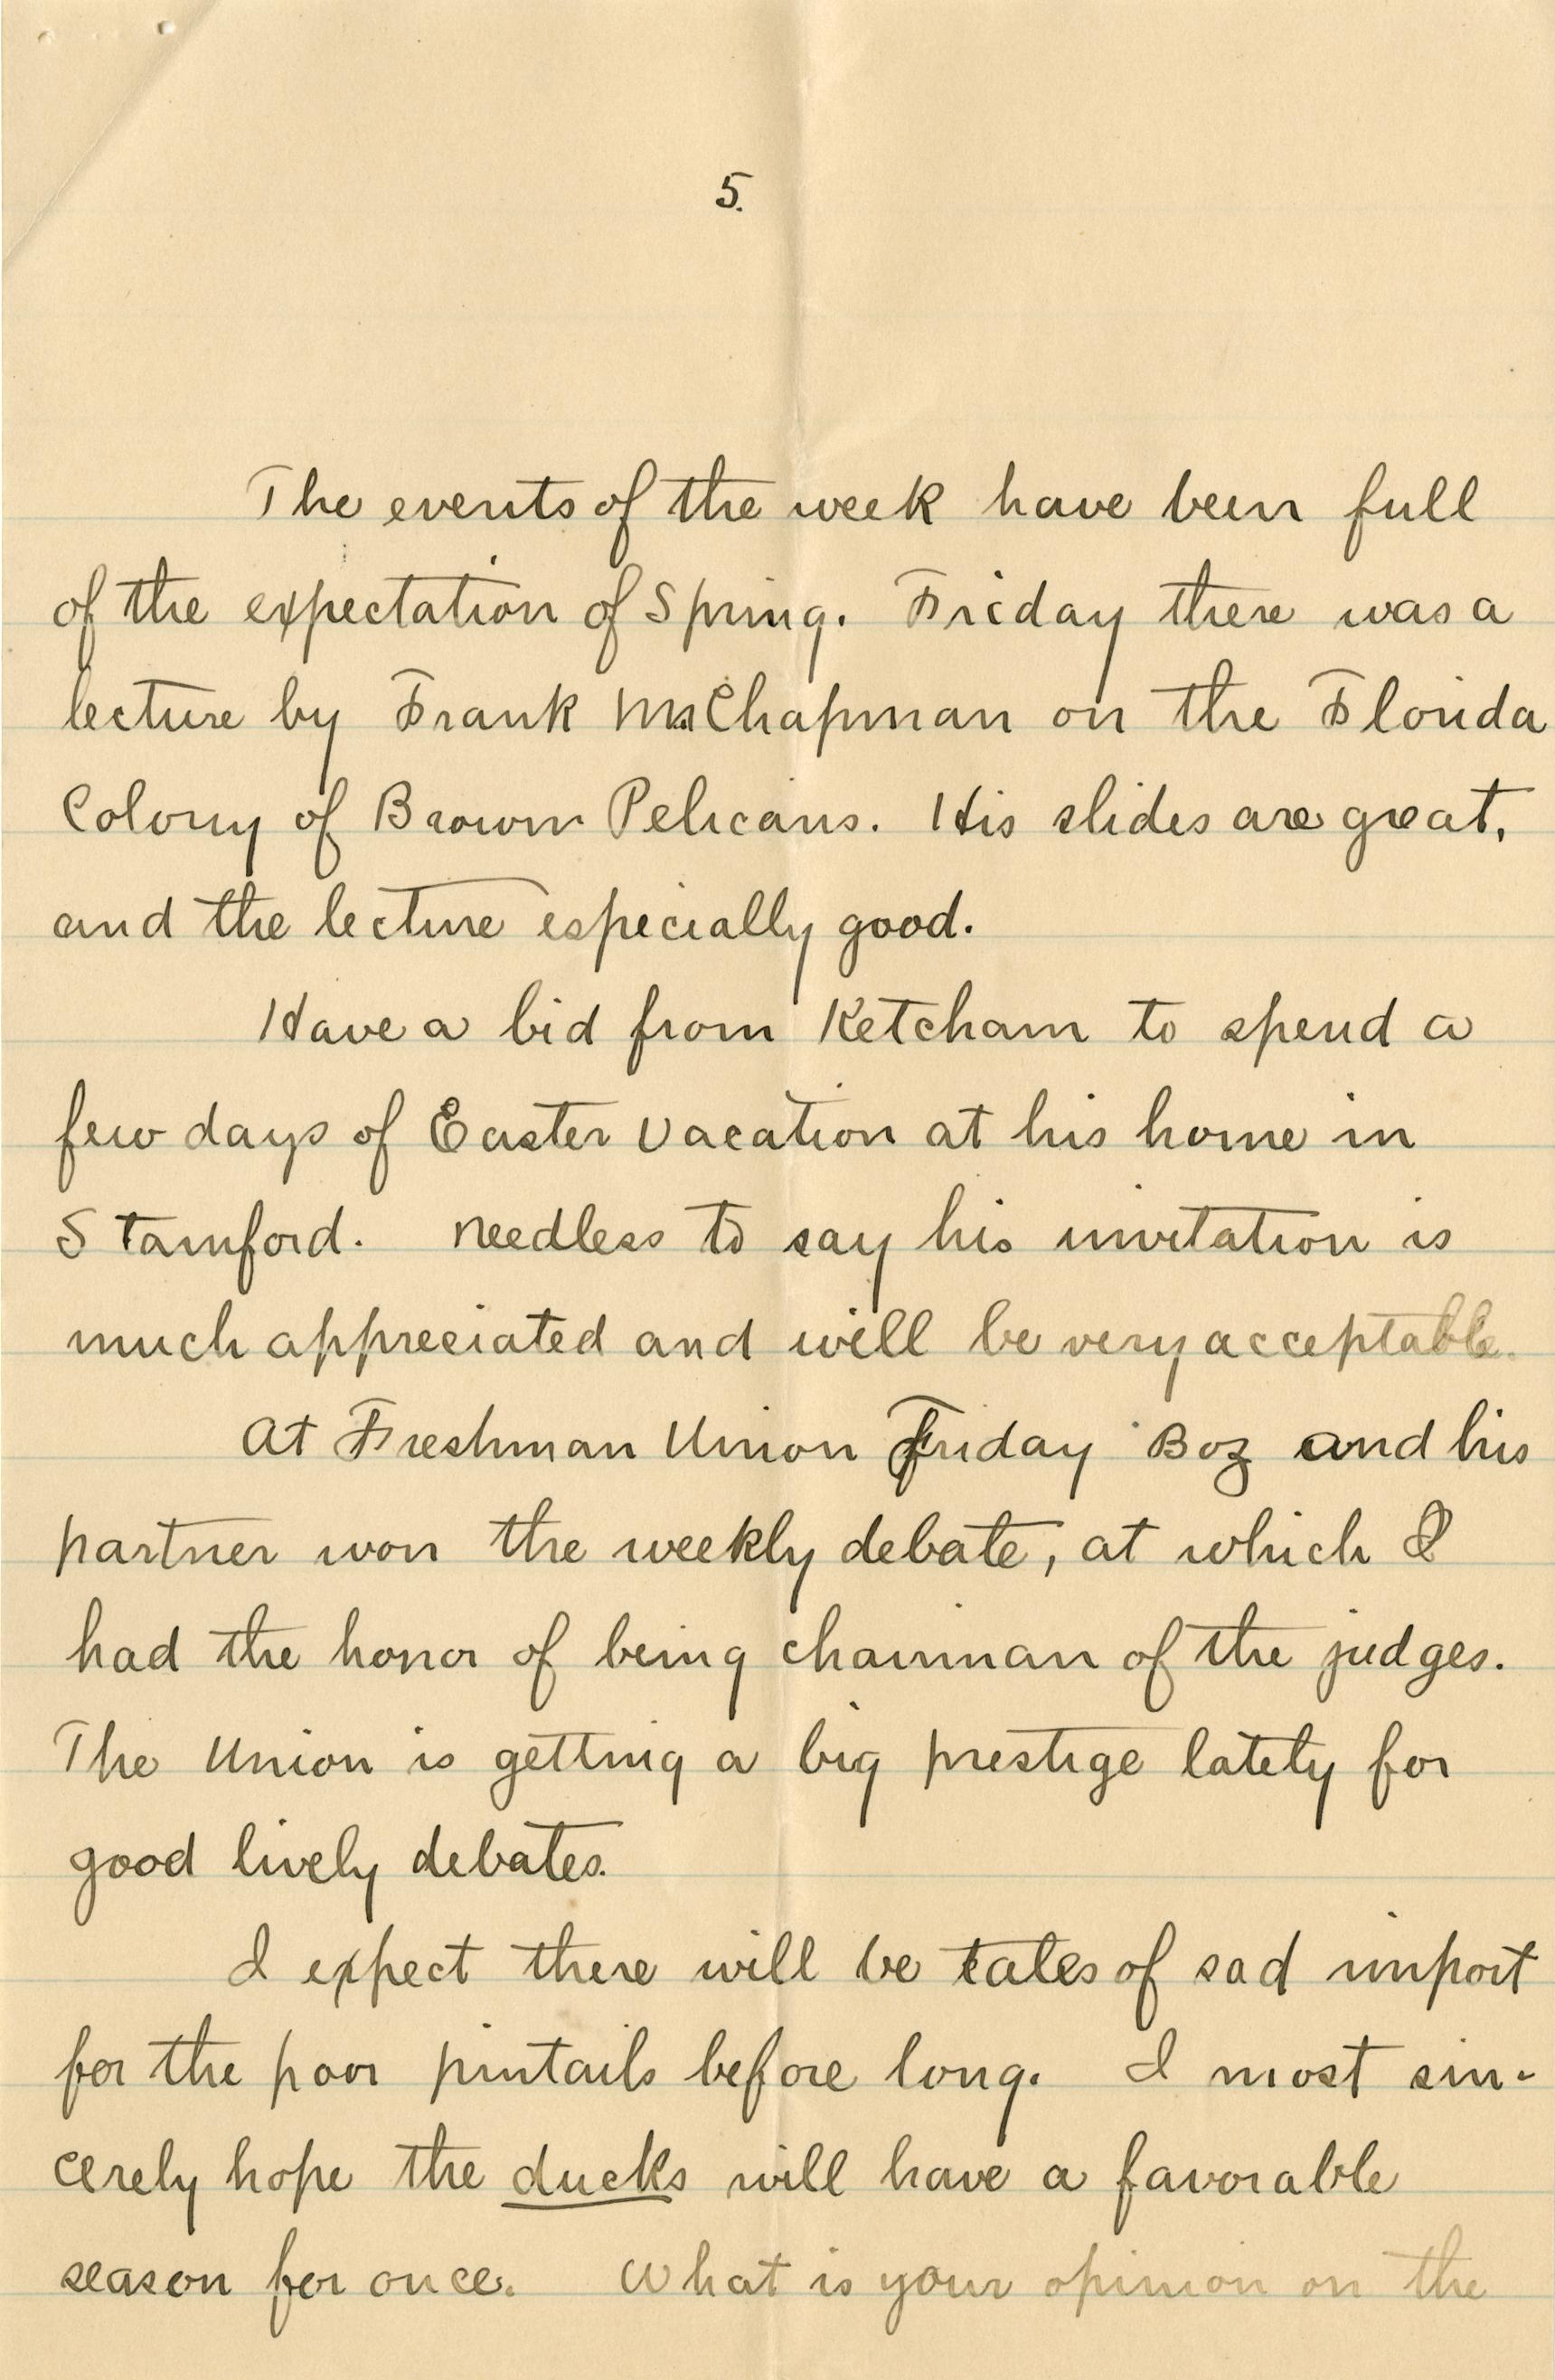 5.
The events of the week have been full
of the expectation of Spring. Friday there was a
lecture by Frank M. Chapman on the Florida
Colony of Brown Pelicans. His slides are great,
and the lecture especially good.
Have a bid from Ketcham to spend a
few days of Easter vacation at his home in
Stamford. Needless to say his invitation is
much appreciated and will be very acceptable.
At Freshman Union Friday Boz and his
partner won the weekly debate, at which I
had the honor of being chairman of the judges.
The Union is getting a big prestige lately for
good lively debates.
I expect there will be tales of sad import
for the poor pintails before long. I most sin-
cerely hope the ducks will have a favorable
season for once. What is your opinion on the